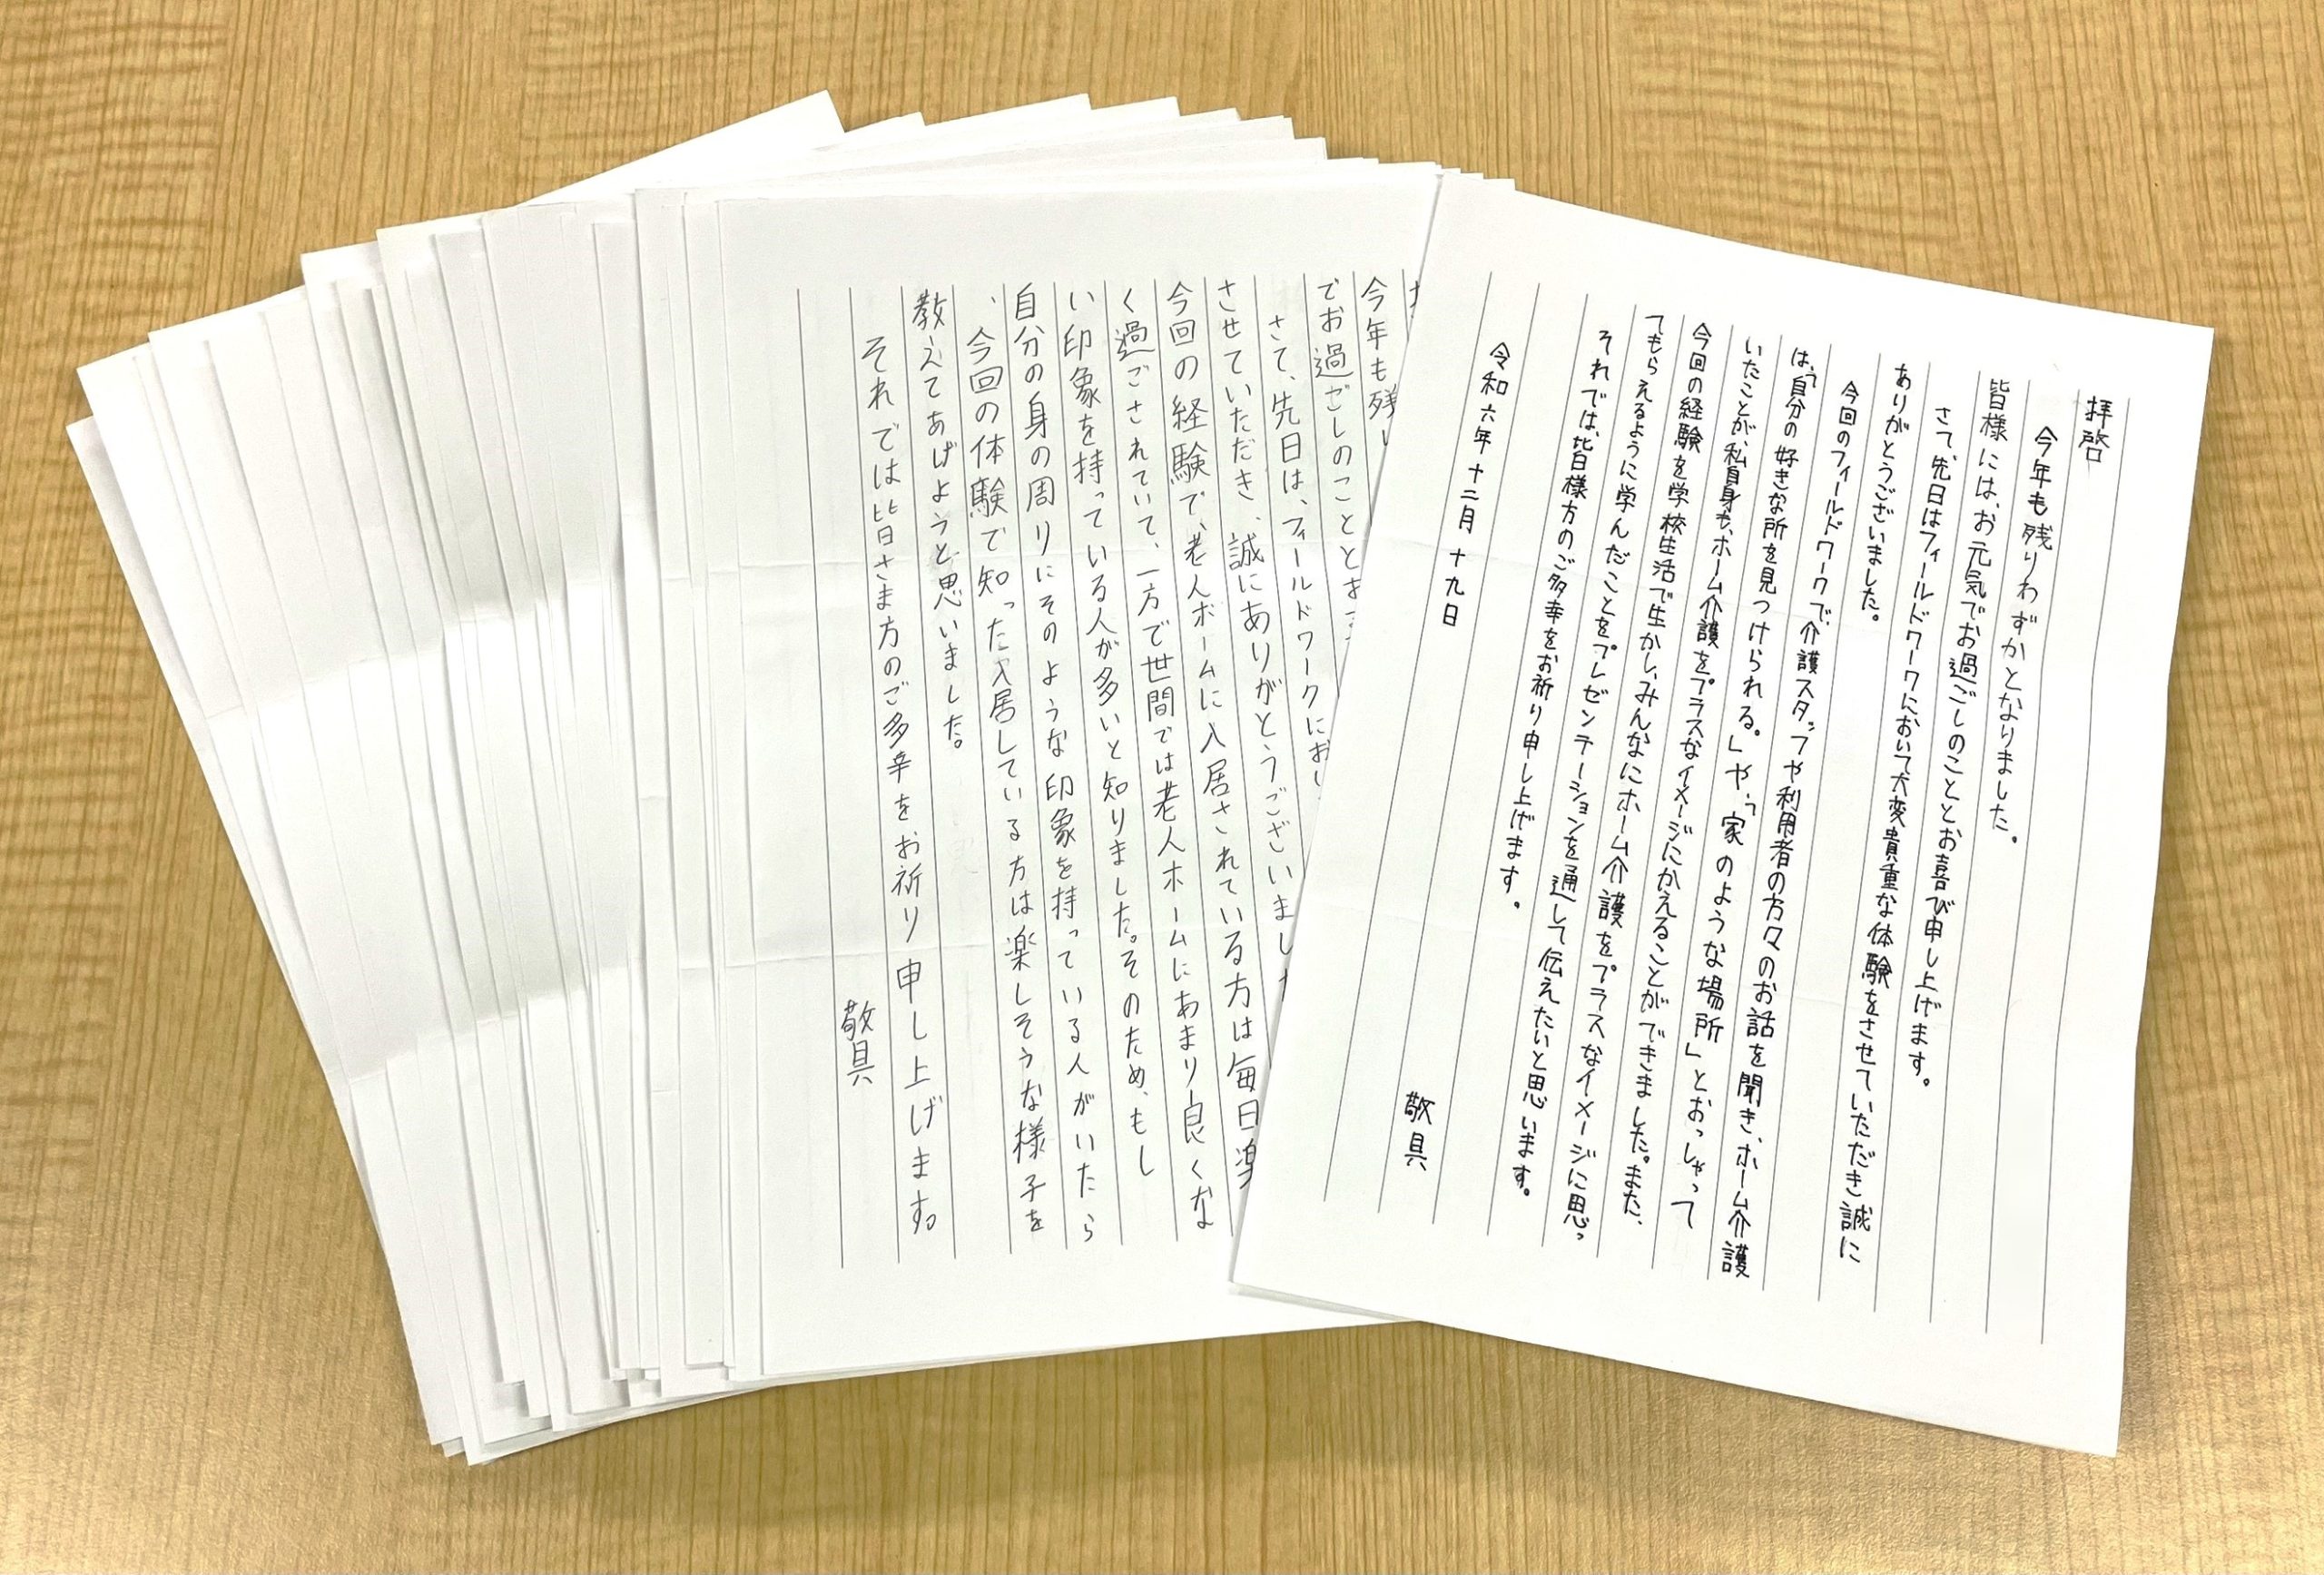 拝啓
今年も残りわずかとなりました。
皆様には、お元気でお過ごしのこととお喜び申し上げます。
さて、先日はフィールドワークにおいて大変貴重な体験をさせていただき誠に
ありがとうございました。
今回のフィールドワークで、介護スタッフや利用者の方々のお話を聞き、ホーム介護
は、「自分の好きな所を見つけられる。」や、「家のような場所」とおっしゃって
いたことが、私自身も、ホーム介護をプラスなイメージにかえることができました。また、
今回の経験を学校生活で生かし、みんなにホーム介護をプラスなイメージに思っ
てもらえるように学んだことをプレゼンテーションを通して伝えたいと思います。
それでは、皆様方のご多幸をお祈り申し上げます。
敬具
令和六年十二月十九日
今年も残り
でお過ごしのこととお
さて、先日は、フィールドワークにおい
させていただき、誠にありがとうございました
今回の経験で、老人ホームに入居されている方は毎日楽
く過ごされていて、一方で世間では老人ホームにあまり良くな
い印象を持っている人が多いと知りました。そのため、もし
自分の身の周りにそのような印象を持っている人がいたら
、今回の体験で知った入居している方は楽しそうな様子を
教えてあげようと思いました。
それでは皆さま方のご多幸をお祈り申し上げます。
敬具